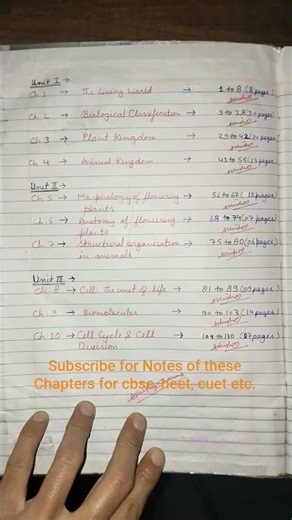 Unit I →
Ch 1 → The Living World → 1 to 8 (8 pages)
Ch. 2 → Biological Classification → 9 to 28 (20 pages)
Ch 3 → Plant Kingdom → 29 to 42 (14 pages)
Ch. 4 → Animal Kingdom → 43 to 55 (13 pages)
Unit II →
Ch. 5 → Morphology of flowering → 56 to 67 (12 pages)
plants
Ch. 6 → Anatomy of flowering → 68 to 74 (07 pages)
plants
Ch. 7 → Structural organisation → 75 to 80 (06 pages)
in animals
Unit III →
Ch. 8 → Cell: The unit of life → 81 to 89 (09 pages)
Ch. 9 → Biomolecules → 90 to 103 (14 pages)
Ch 10 → Cell Cycle & Cell → 104 to 110 (07 pages)
Division
Subscribe for Notes of these
Chapters for cbse, neet, cuet etc.